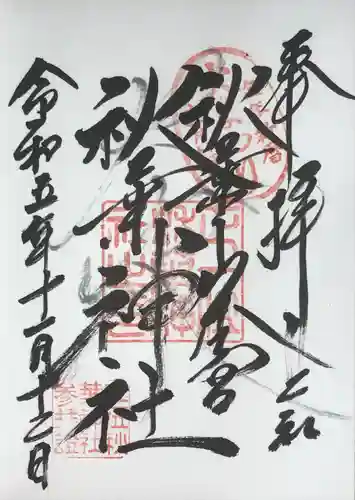 奉拝
上社
秋葉山本宮
秋葉神社
令和五年十一月十二日